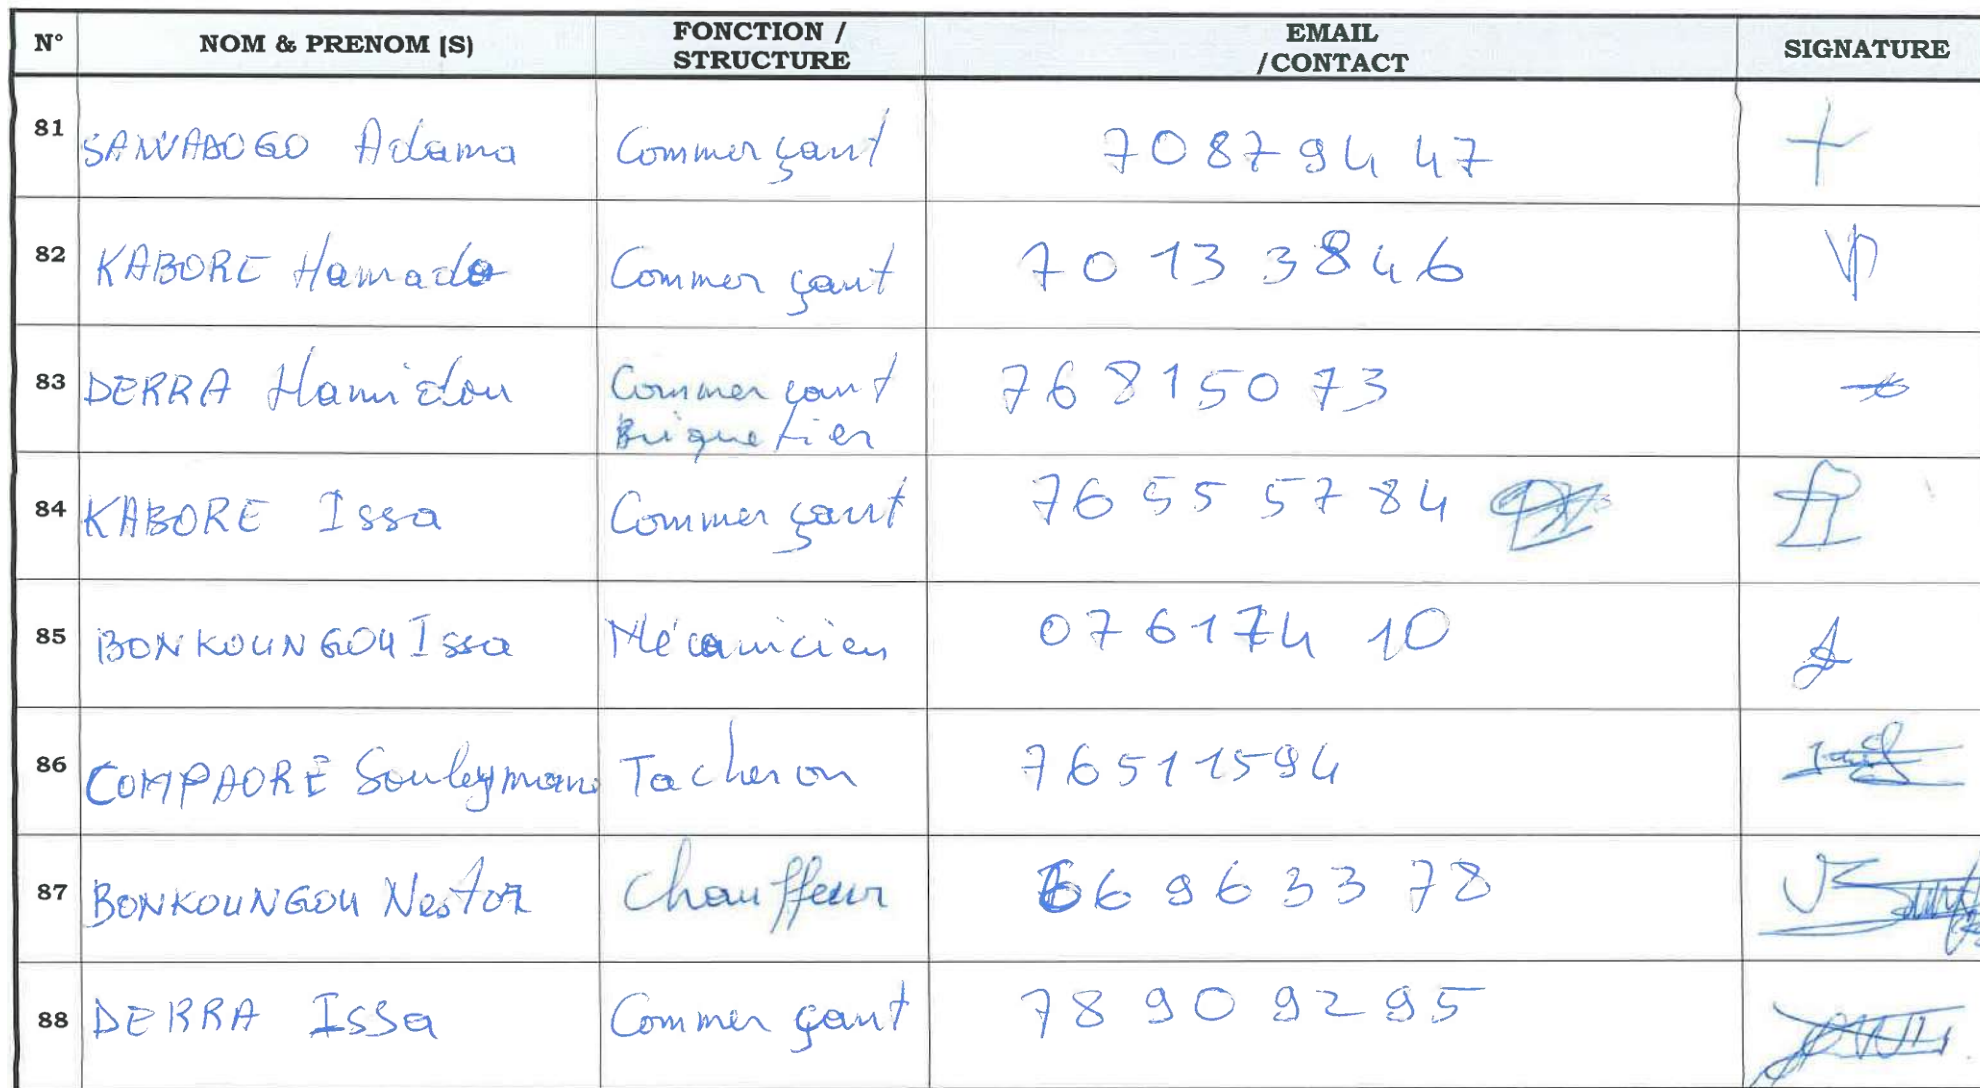 N° NOM & PRENOM [S] FONCTION / STRUCTURE EMAIL /CONTACT SIGNATURE
81 SAWADOGO Adama Commerçant 70879447
82 KABORE Hamado Commerçant 70133846
83 DERRA Hamidou Commerçant Briquetier 76815073
84 KABORE Issa Commerçant 76555784
85 BONKOUNGOU Issa Mécanicien 07617410
86 COMPAORE Souleymane Tacheron 76511594
87 BONKOUNGOU Nestor Chauffeur 66963378
88 DERRA Issa Commerçant 78909295